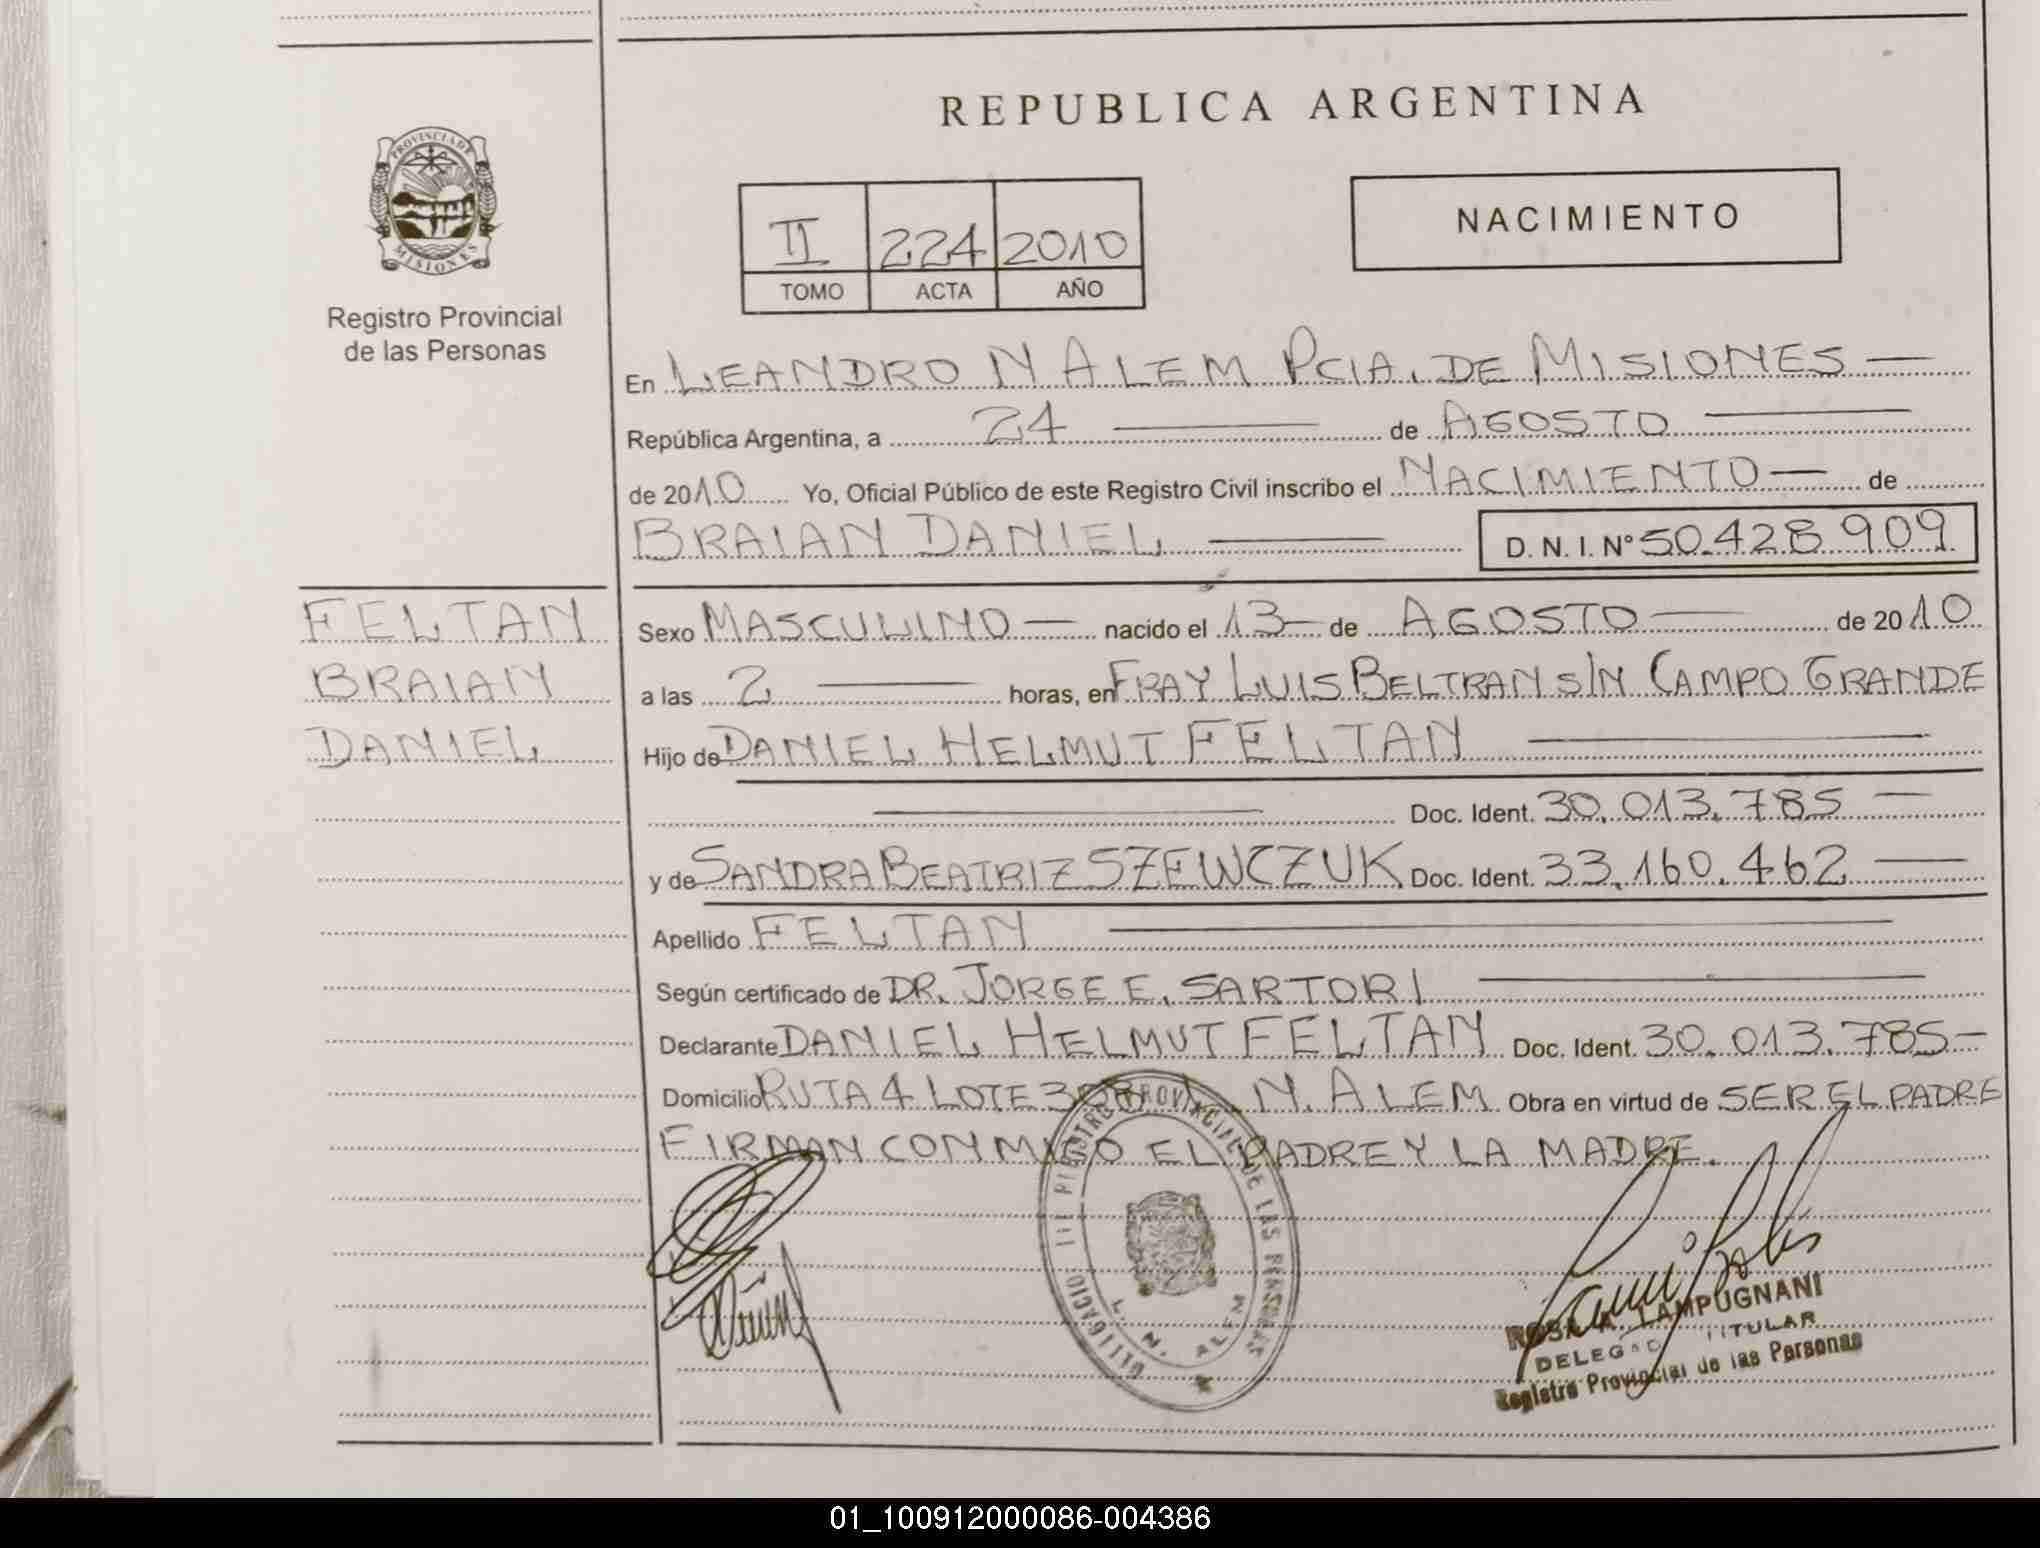 REPUBLICA ARGENTINA
PROVINCIA DE
MISIONES
Registro Provincial
de las Personas
NACIMIENTO
II 224 2010
TOMO ACTA AÑO
En LEANDRO N ALEM PCIA. DE MISIONES —
República Argentina, a 24 — de AGOSTO —
de 2010 Yo, Oficial Público de este Registro Civil inscribo el NACIMIENTO — de
BRAIAN DANIEL — D. N. I. N° 50.428.909
FELTAN
BRAIAN
DANIEL
Sexo MASCULINO — nacido el 13 — de AGOSTO — de 2010
a las 2 — horas, en FRAY LUIS BELTRAN S/N CAMPO GRANDE
Hijo de DANIEL HELMUT FELTAN —
— Doc. Ident. 30.013.785 —
y de SANDRA BEATRIZ SZEWCZUK Doc. Ident. 33.160.462 —
Apellido FELTAN —
Según certificado de DR. JORGE E. SARTORI —
Declarante DANIEL HELMUT FELTAN Doc. Ident. 30.013.785 —
Domicilio RUTA 4 LOTE N. ALEM Obra en virtud de SER EL PADRE
FIRMAN CONMIGO EL PADRE Y LA MADRE.
REGISTRO PROVINCIAL DE LAS PERSONAS
L. N. ALEM
ROSA A. LAMPUGNANI
TITULAR
Registro Provincial de las Personas
01_100912000086-004386